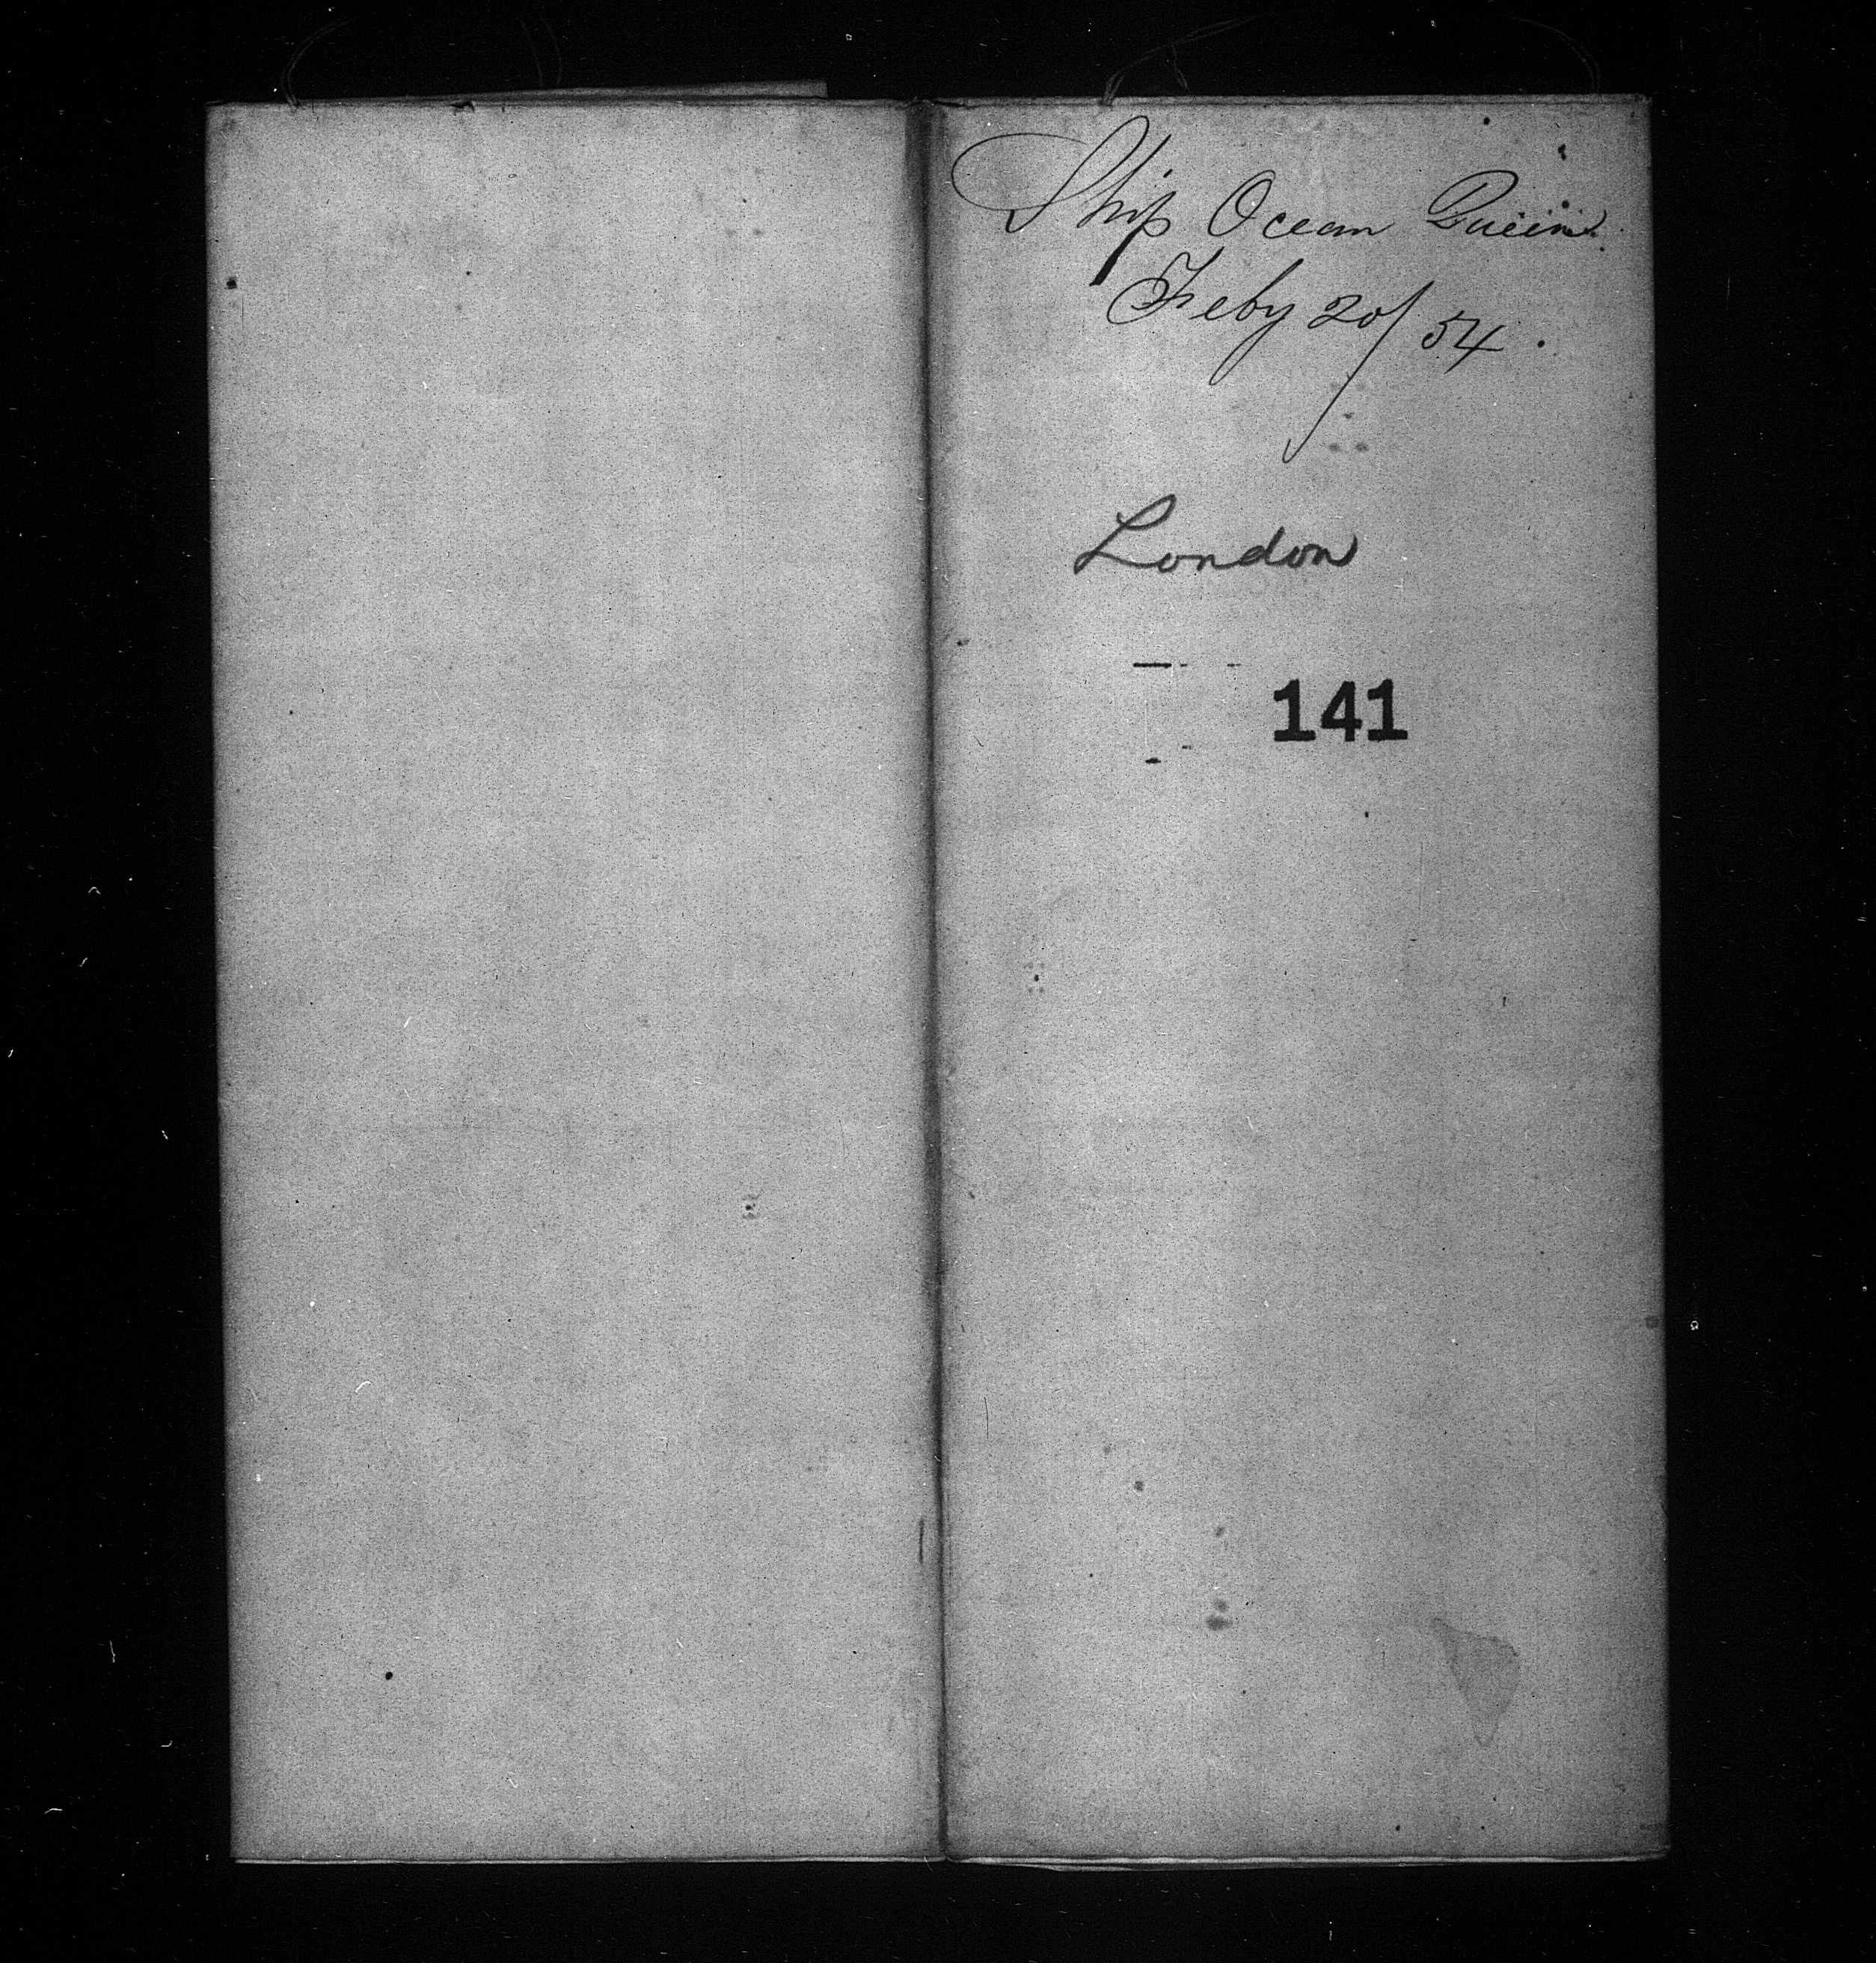 Ship Ocean Queen.
Feby 20/54.
London
141